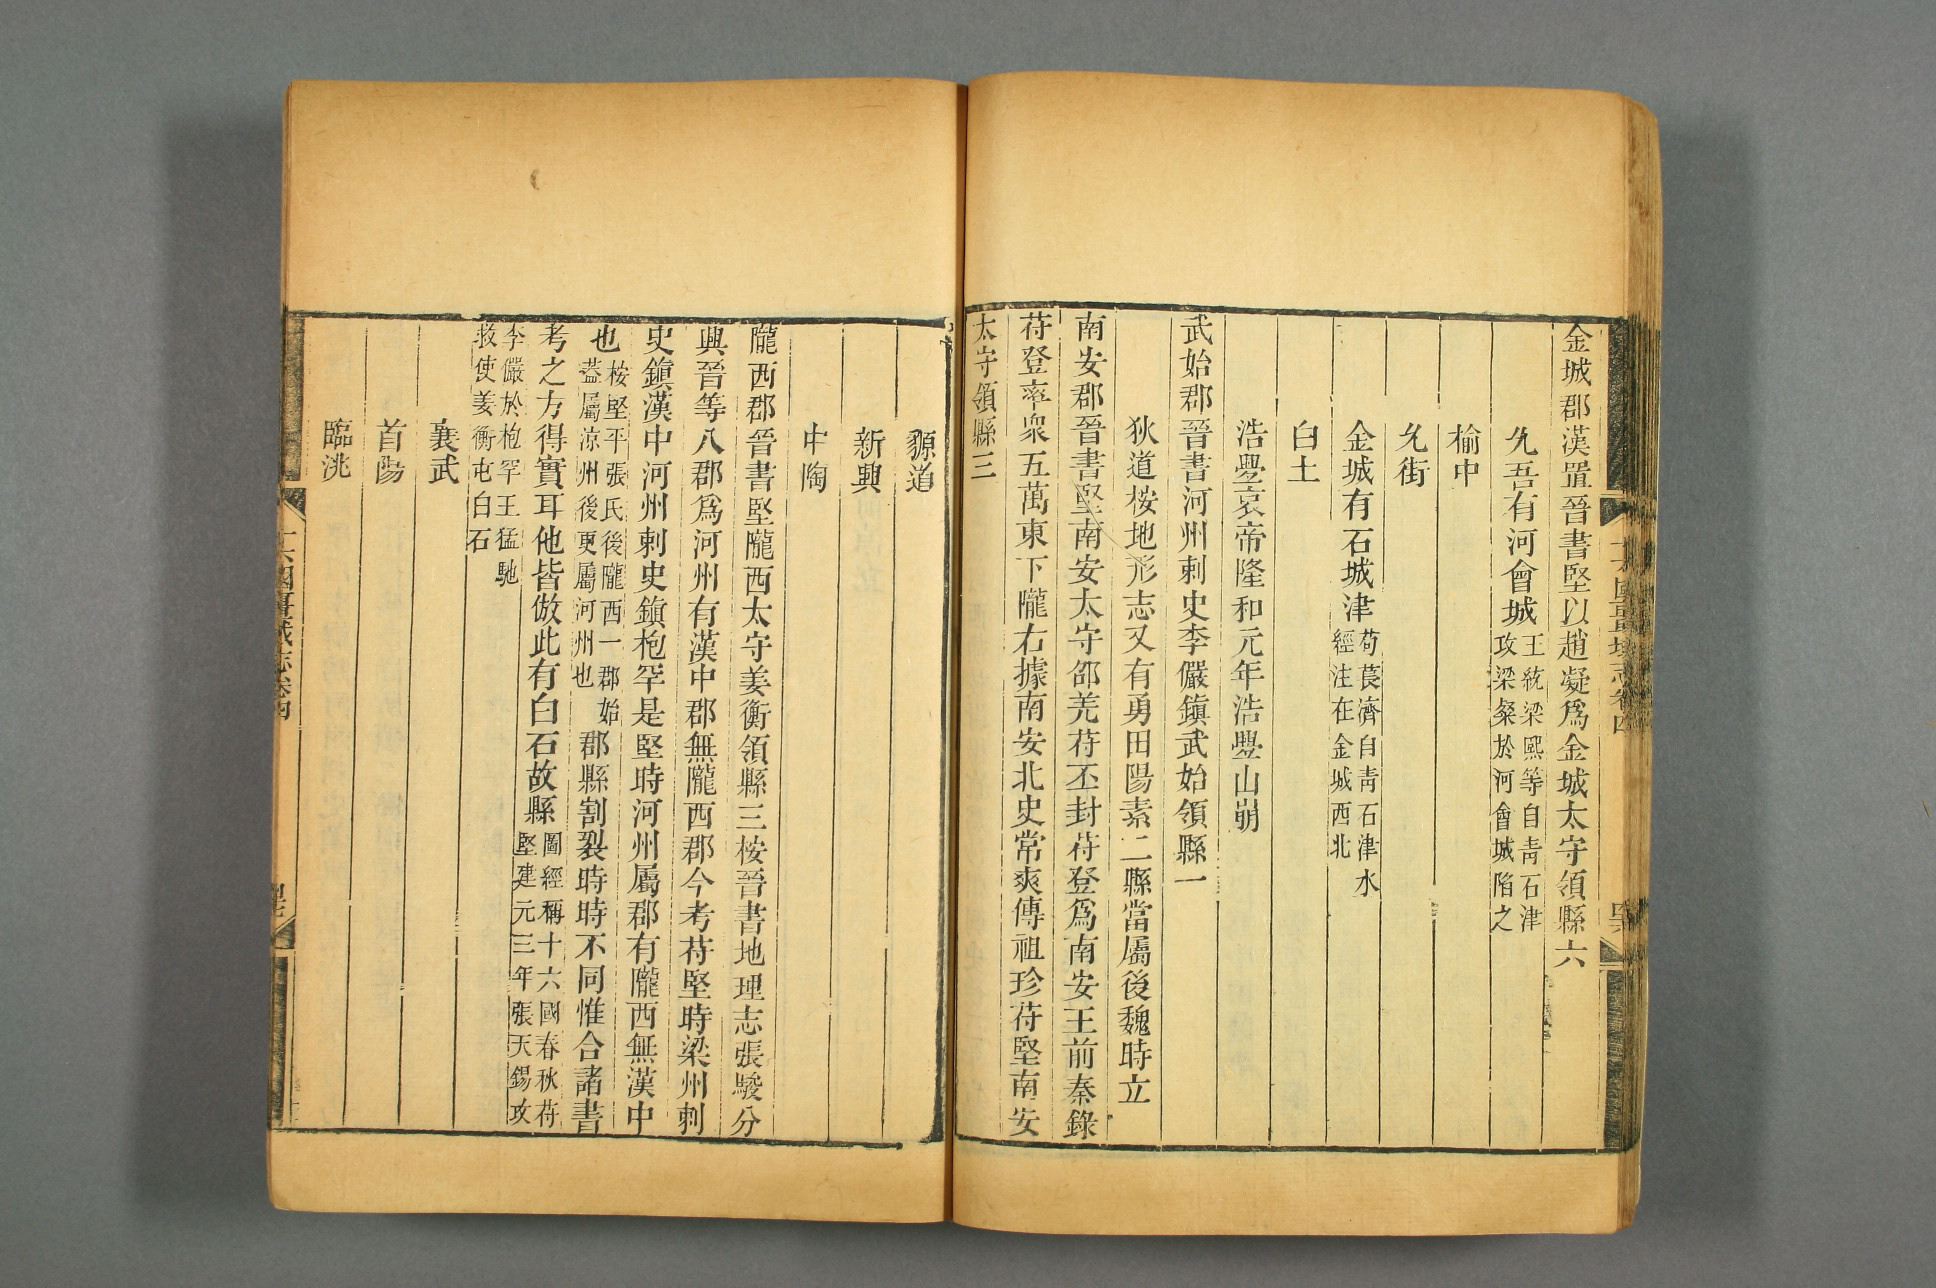 金城郡漢置晉書堅以趙凝爲金城太守領縣六
允吾有河會城王統梁熙等自靑石津
攻梁粲於河會城陷之
榆中
允街
金城有石城津苟萇濟自靑石津水
經注在金城西北
白土
浩亹哀帝隆和元年浩亹山崩
武始郡晉書河州刺史李儼鎭武始領縣一
狄道桉地形志又有勇田陽素二縣當屬後魏時立
南安郡晉書堅南安太守邵羌苻丕封苻登爲南安王前秦錄
苻登率衆五萬東下隴右據南安北史常爽傳祖珍苻堅南安
太守領縣三
獂道
新興
中陶
隴西郡晉書堅隴西太守姜衡領縣三桉晉書地理志張駿分
興晉等八郡爲河州有漢中郡無隴西郡今考苻堅時梁州刺
史鎭漢中河州刺史鎭枹罕是堅時河州屬郡有隴西無漢中
也桉堅平張氏後隴西一郡始
葢屬涼州後更屬河州也郡縣割裂時時不同惟合諸書
考之方得實耳他皆倣此有白石故縣圖經稱十六國春秋苻
堅建元三年張天錫攻
李儼於枹罕王猛馳
救使姜衡屯白石
襄武
首陽
臨洮
十六國疆域志卷四